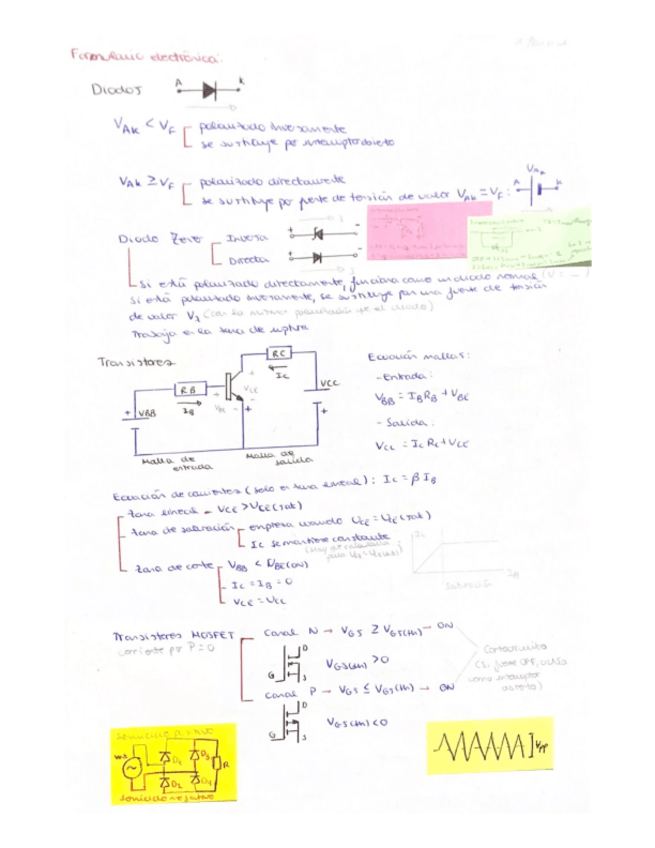 Formulario electrónica:
Diodos
A K
VAK < VF
polarizado inversamente
se sustituye por interruptor abierto
VAK ≥ VF
polarizado directamente
se sustituye por fuente de tensión de valor VAK = VF:
VAK
A K
Diodo Zener
Inversa
Directa
Si está polarizado directamente, funciona como un diodo normal
Si está polarizado inversamente, se sustituye por una fuente de tensión
de valor Vz (con la misma polarización que el diodo)
Trabaja en la zona de ruptura
Transistores
RC
IC
RB
IB
VBB
VCE
VBE
VCC
Malla de
entrada
Malla de
salida
Ecuación mallas:
- Entrada:
VBB = IB RB + VBE
- Salida:
VCC = IC RC + VCE
Ecuación de corrientes (solo en zona lineal): IC = β IB
zona lineal - VCE > VCE(sat)
zona de saturación
empieza cuando VCE = VCE(sat)
IC se mantiene constante
zona de corte
VBB < VBE(ON)
IC = IB = 0
VCE = VCC
IC
IB
saturación
Transistores MOSFET
corriente por P = 0
Canal N → VGS ≥ VGS(th) → ON
VGS(th) > 0
G D S
Canal P → VGS ≤ VGS(th) → ON
VGS(th) < 0
G D S
Cortocircuito
como interruptor
abierto)
semiciclo positivo
D1 D3
D2 D4
R
semiciclo negativo
VPP